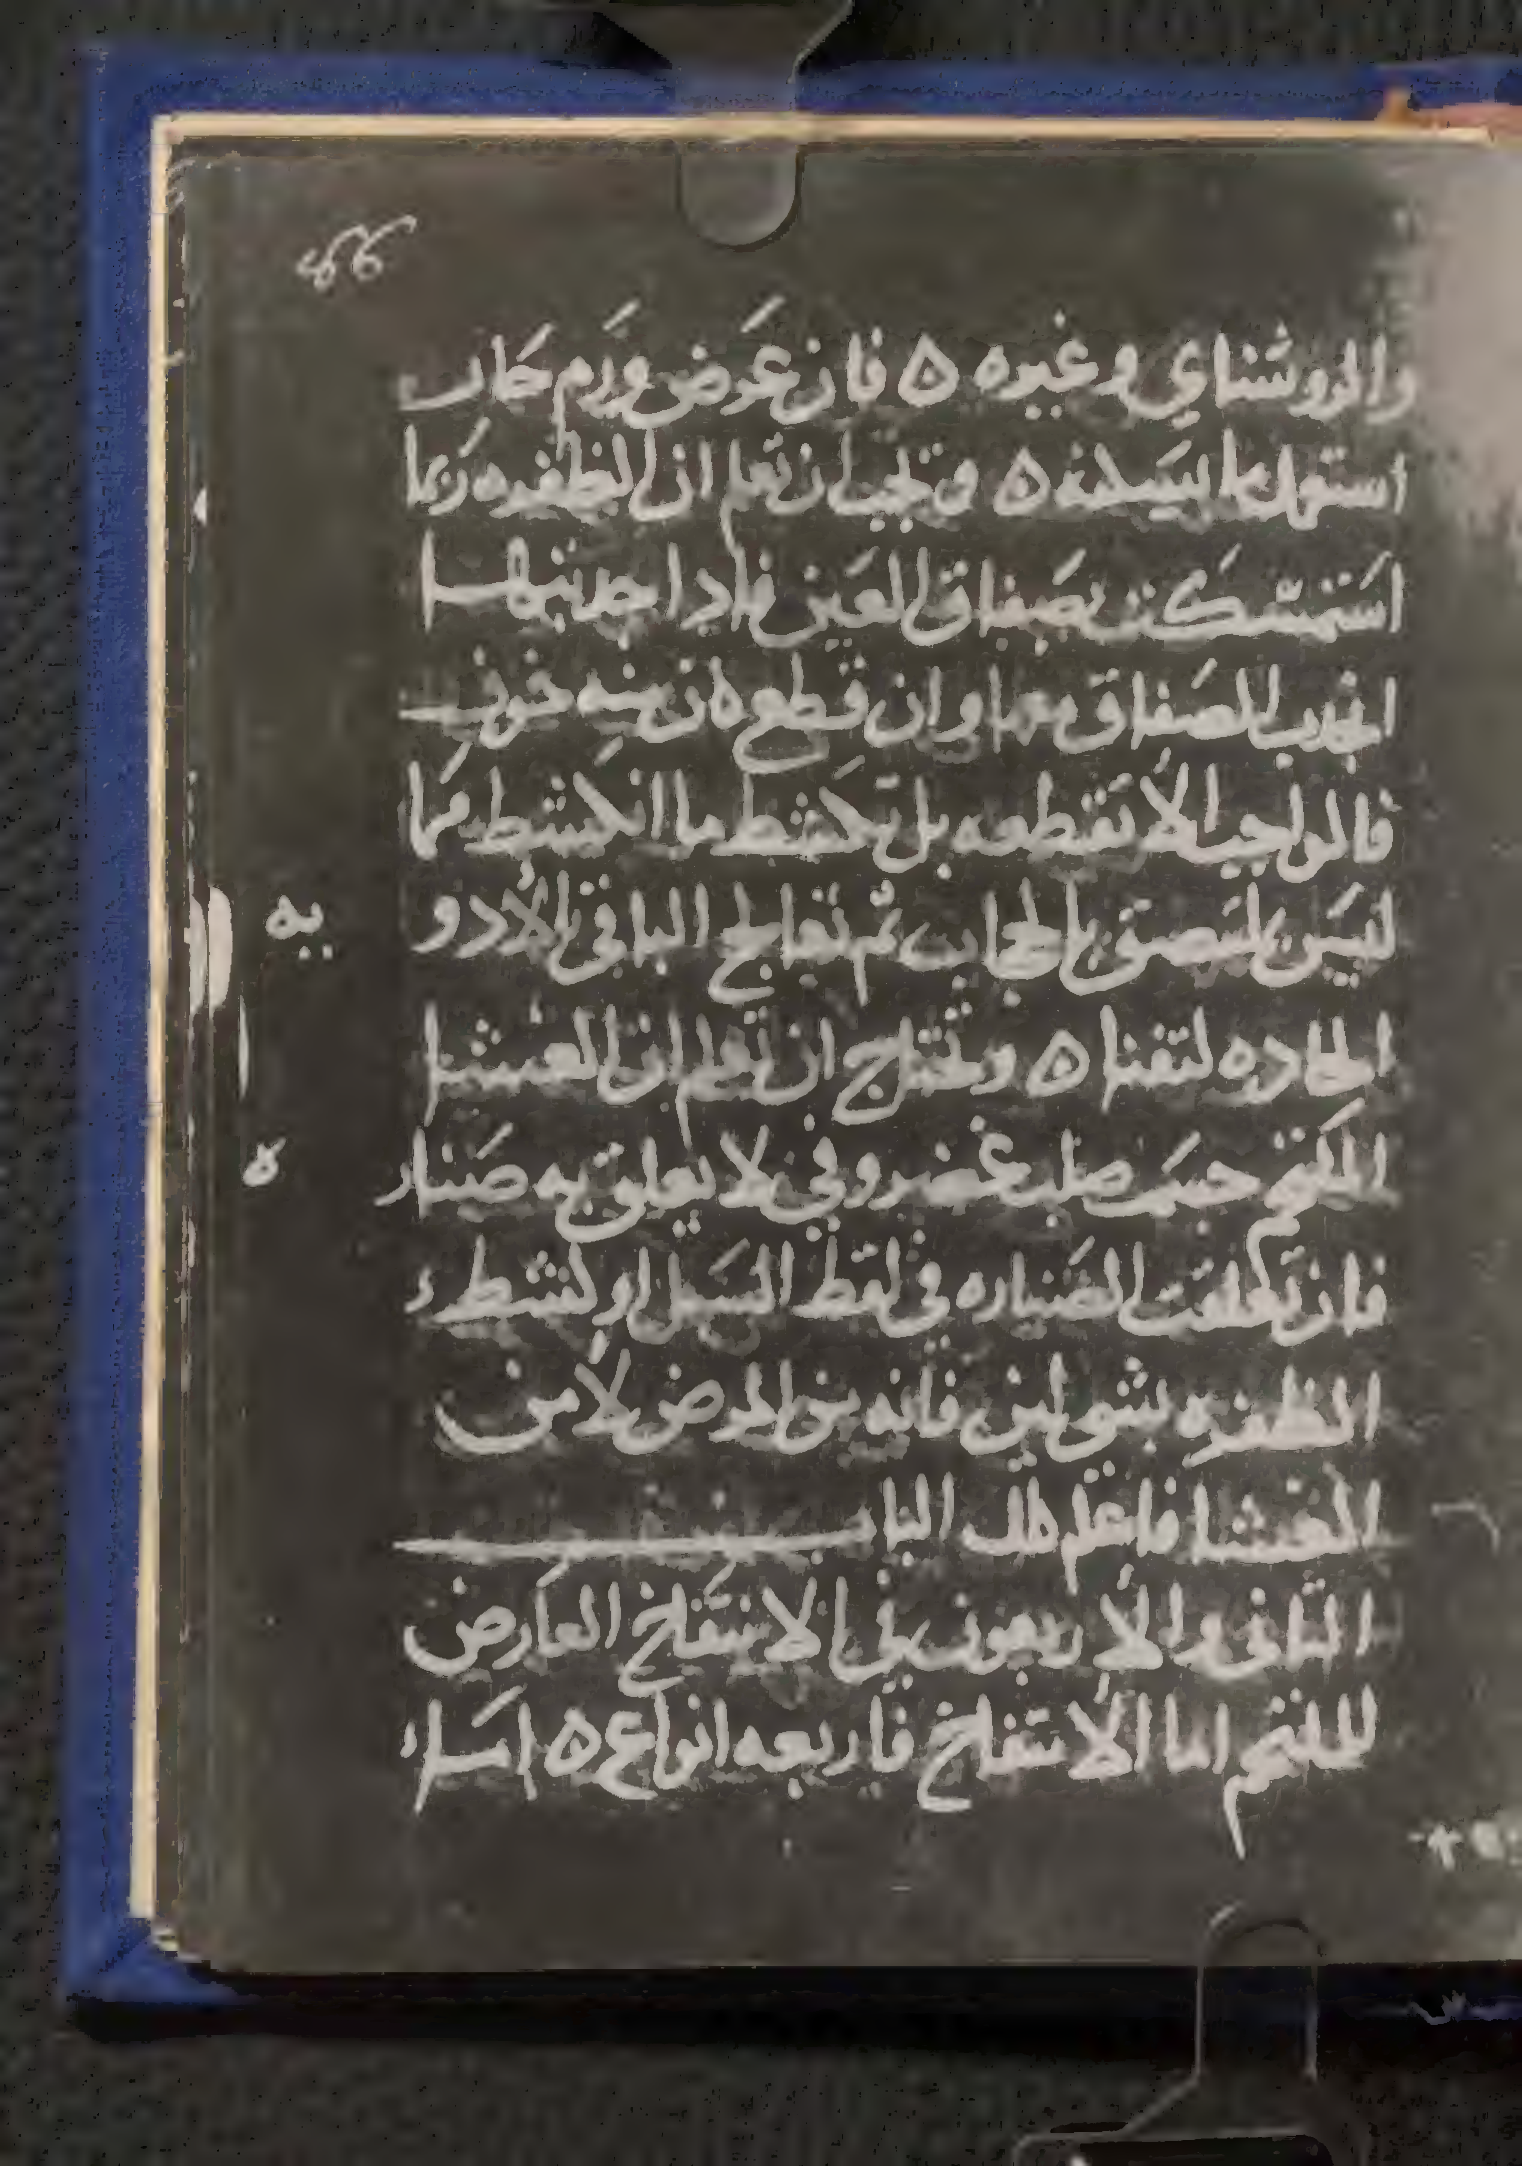 والروشناي وغيره ه فان عرض ورم حار
استعمل ما يسكنه ه ويجب ان تعلم ان الظفره ربما
استمسكت بصفاق العين فاذا جذبتها
انجذب الصفاق معها وان قطع كان منه خوف
فالواجب الا تقطعه بل تكشط ما انكشط مما
ليس بملتصق بالحجاب ثم تعالج الباقي بالادو
يه
الحاده لتفنا ه وتحتاج ان تعلم ان الغشا
الملتحم جسم صلب غضروفي لا يعلق به صنار
ه
فان تعلقت الصناره في لقط السبل او كشط
الظفره بشي لين فانه من المرض لا من
الغشا فاعلم ذلك الباب
الثاني والاربعون في الانتفاخ العارض
للملتحم اما الانتفاخ فاربعه انواع ه اما